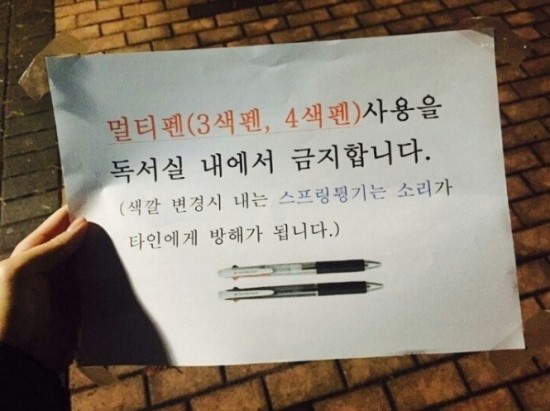 멀티펜(3색펜, 4색펜)사용을
독서실 내에서 금지합니다.
(색깔 변경시 내는 스프링튕기는 소리가
타인에게 방해가 됩니다.)